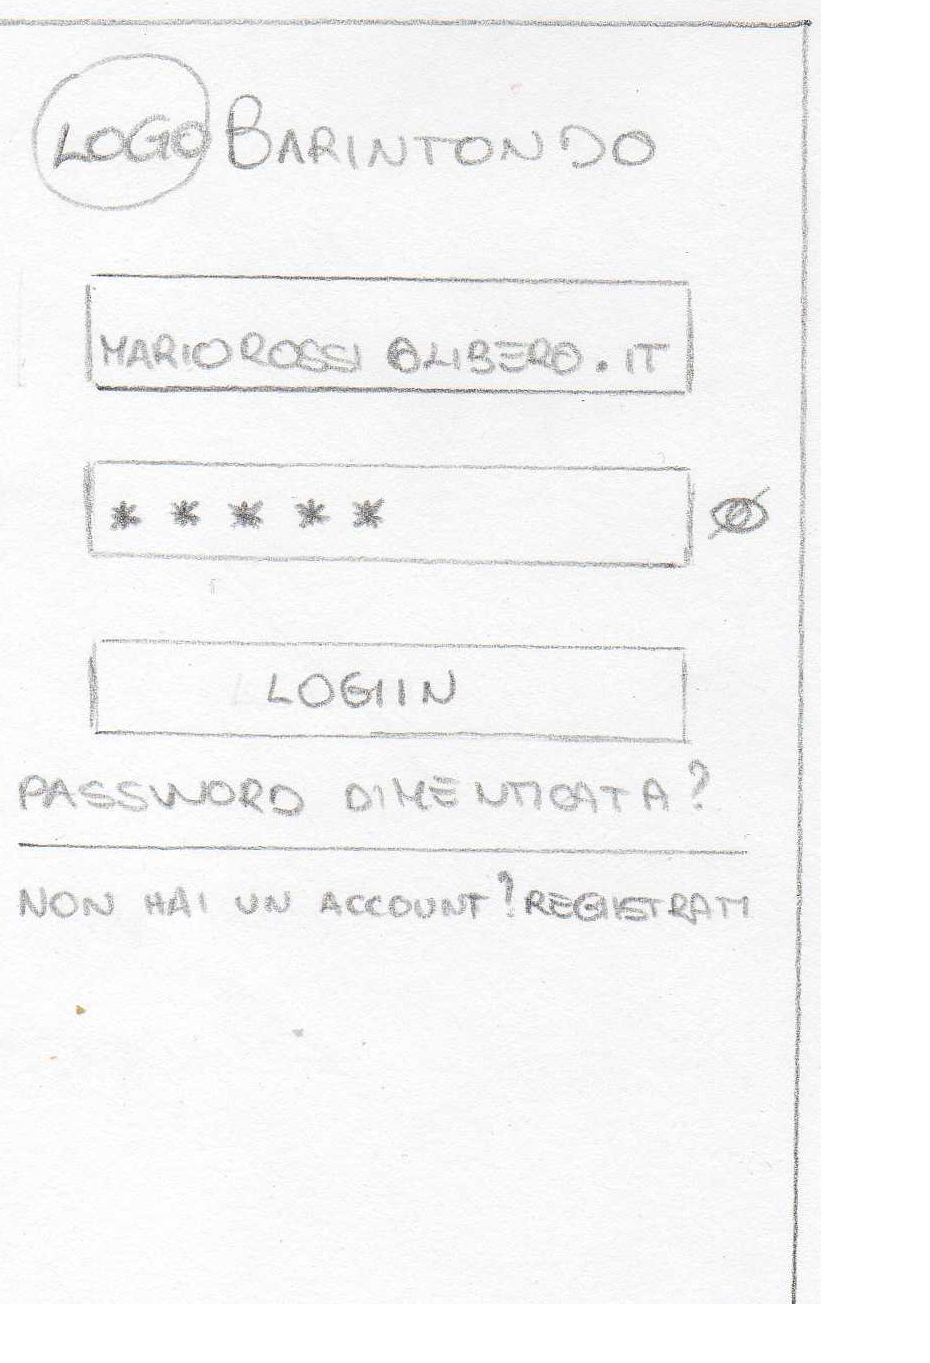 LOGO BARINTONDO
MARIOROSSI @LIBERO.IT
*****
LOGIIN
PASSWORD DIMENTICATA?
NON HAI UN ACCOUNT? REGISTRATI